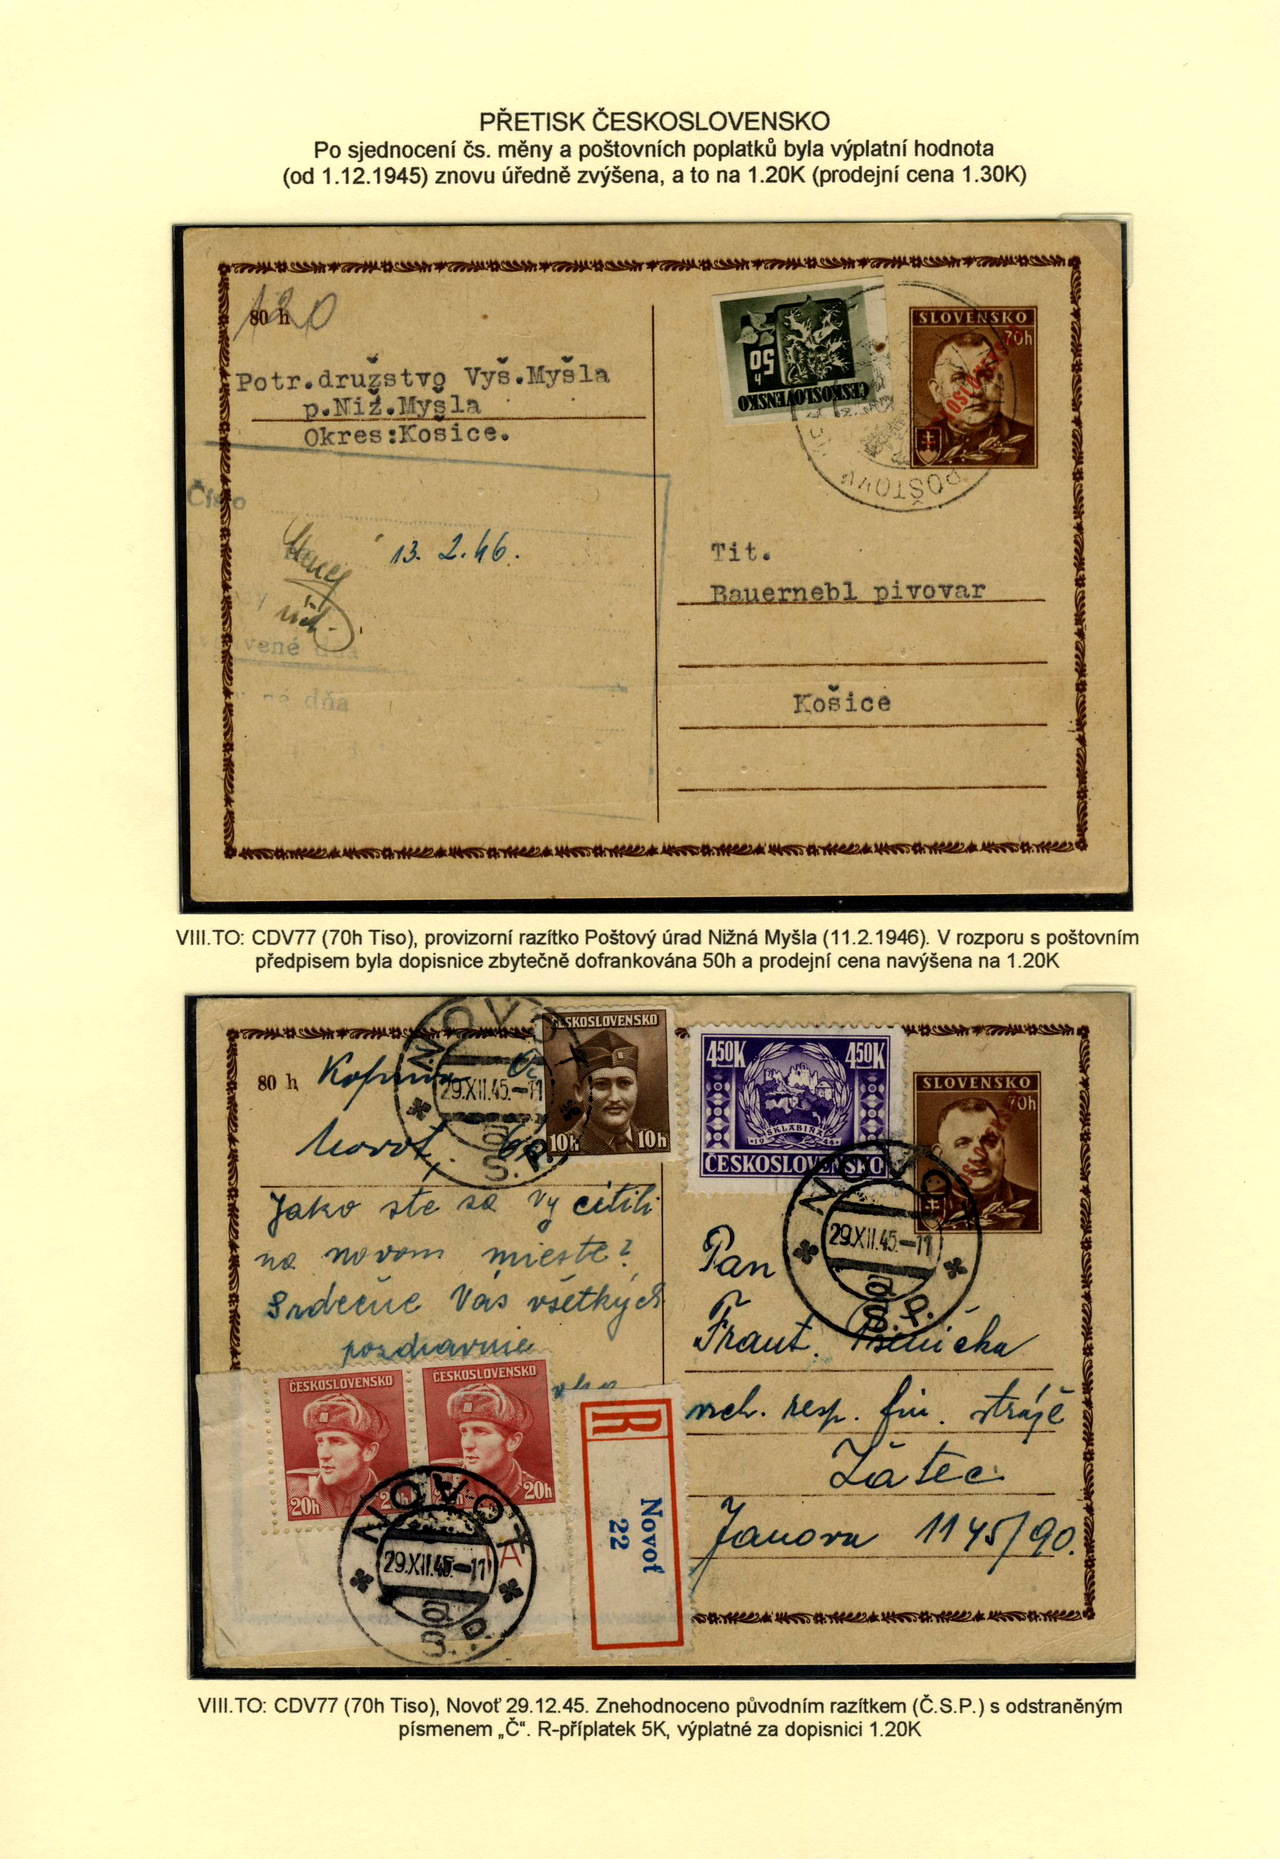 PŘETISK ČESKOSLOVENSKO
Po sjednocení čs. měny a poštovních poplatků byla výplatní hodnota
(od 1.12.1945) znovu úředně zvýšena, a to na 1.20K (prodejní cena 1.30K)
120
80 h
Potr.družstvo Vyš.Myšla
p.Niž.Myšla
Okres:Košice.
Číslo
13. 2. 46.
dňa
dňa
50 h
ČESKOSLOVENSKO
SLOVENSKO
70h
POŠTOVÝ
Tit.
Bauernebl pivovar
Košice
VIII.TO: CDV77 (70h Tiso), provizorní razítko Poštový úrad Nižná Myšla (11.2.1946). V rozporu s poštovním
předpisem byla dopisnice zbytečně dofrankována 50h a prodejní cena navýšena na 1.20K
80 h
Novoť
Jako ste sa Vy cítili
na novom mieste?
Srdečne Vás všetkých
pozdravuje
NOVOŤ
29.XII.45.-11
a
S.P.
ČESKOSLOVENSKO
10h 10h
4.50K 4.50K
SKLABIŇA
1944
ČESKOSLOVENSKO
SLOVENSKO
70h
NOVOŤ
29.XII.45.-11
a
S.P.
Pan
Frant.
resp. fin. stráže
Žatec
Janova 1145/90.
ČESKOSLOVENSKO
20h 20h
ČESKOSLOVENSKO
20h 20h
NOVOŤ
29.XII.45.-11
a
S.P.
A
R
Novoť
22
VIII.TO: CDV77 (70h Tiso), Novoť 29.12.45. Znehodnoceno původním razítkem (Č.S.P.) s odstraněným
písmenem „Č“. R-příplatek 5K, výplatné za dopisnici 1.20K